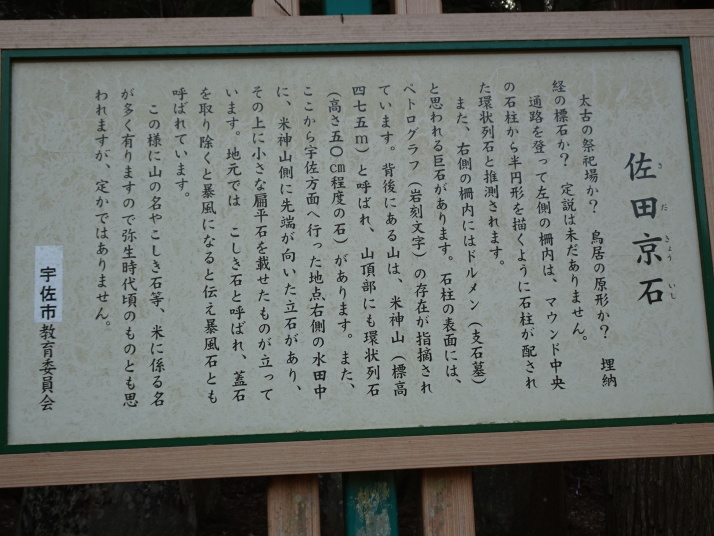 佐田京石
さだきょういし
太古の祭祀場か?　鳥居の原形か?　埋納
経の標石か?　定説は未だありません。
通路を登って左側の柵内は、マウンド中央
の石柱から半円形を描くように石柱が配され
た環状列石と推測されます。
また、右側の柵内にはドルメン（支石墓）
と思われる巨石があります。石柱の表面には、
ペトログラフ（岩刻文字）の存在が指摘され
ています。背後にある山は、米神山（標高
四七五m）と呼ばれ、山頂部にも環状列石
（高さ五〇cm程度の石）があります。また、
ここから宇佐方面へ行った地点右側の水田中
に、米神山側に先端が向いた立石があり、
その上に小さな扁平石を載せたものが立って
います。地元では　こしき石と呼ばれ、蓋石
を取り除くと暴風になると伝え暴風石とも
呼ばれています。
この様に山の名やこしき石等、米に係る名
が多く有りますので弥生時代頃のものとも思
われますが、定かではありません。
宇佐市教育委員会